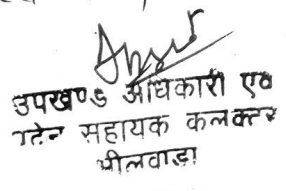 उपखण्ड अधिकारी एव
सहायक कलक्टर
भीलवाडा